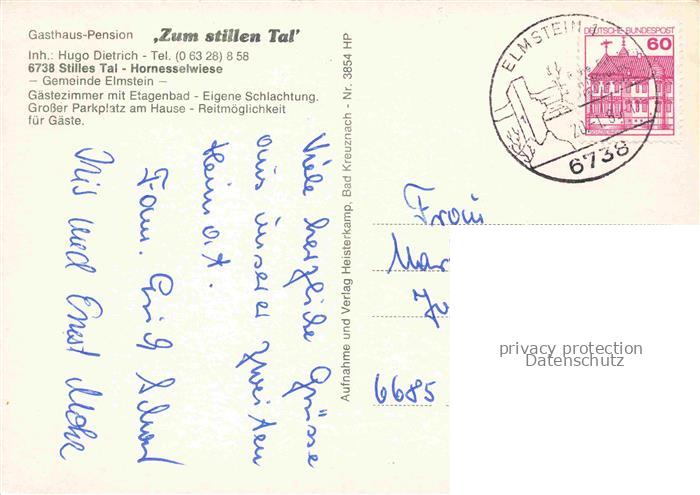 Gasthaus-Pension „Zum stillen Tal“
Inh.: Hugo Dietrich - Tel. (0 63 28) 8 58
6738 Stilles Tal - Hornesselwiese
– Gemeinde Elmstein –
Gästezimmer mit Etagenbad - Eigene Schlachtung.
Großer Parkplatz am Hause - Reitmöglichkeit
für Gäste.
Aufnahme und Verlag Heisterkamp, Bad Kreuznach - Nr. 3854 HP
ELMSTEIN 1
6738
DEUTSCHE BUNDESPOST
60
Viele herzliche Grüsse
aus unserer zweiten
Heimat.
Fam.
und Ernst
Frau
6685
privacy protection
Datenschutz